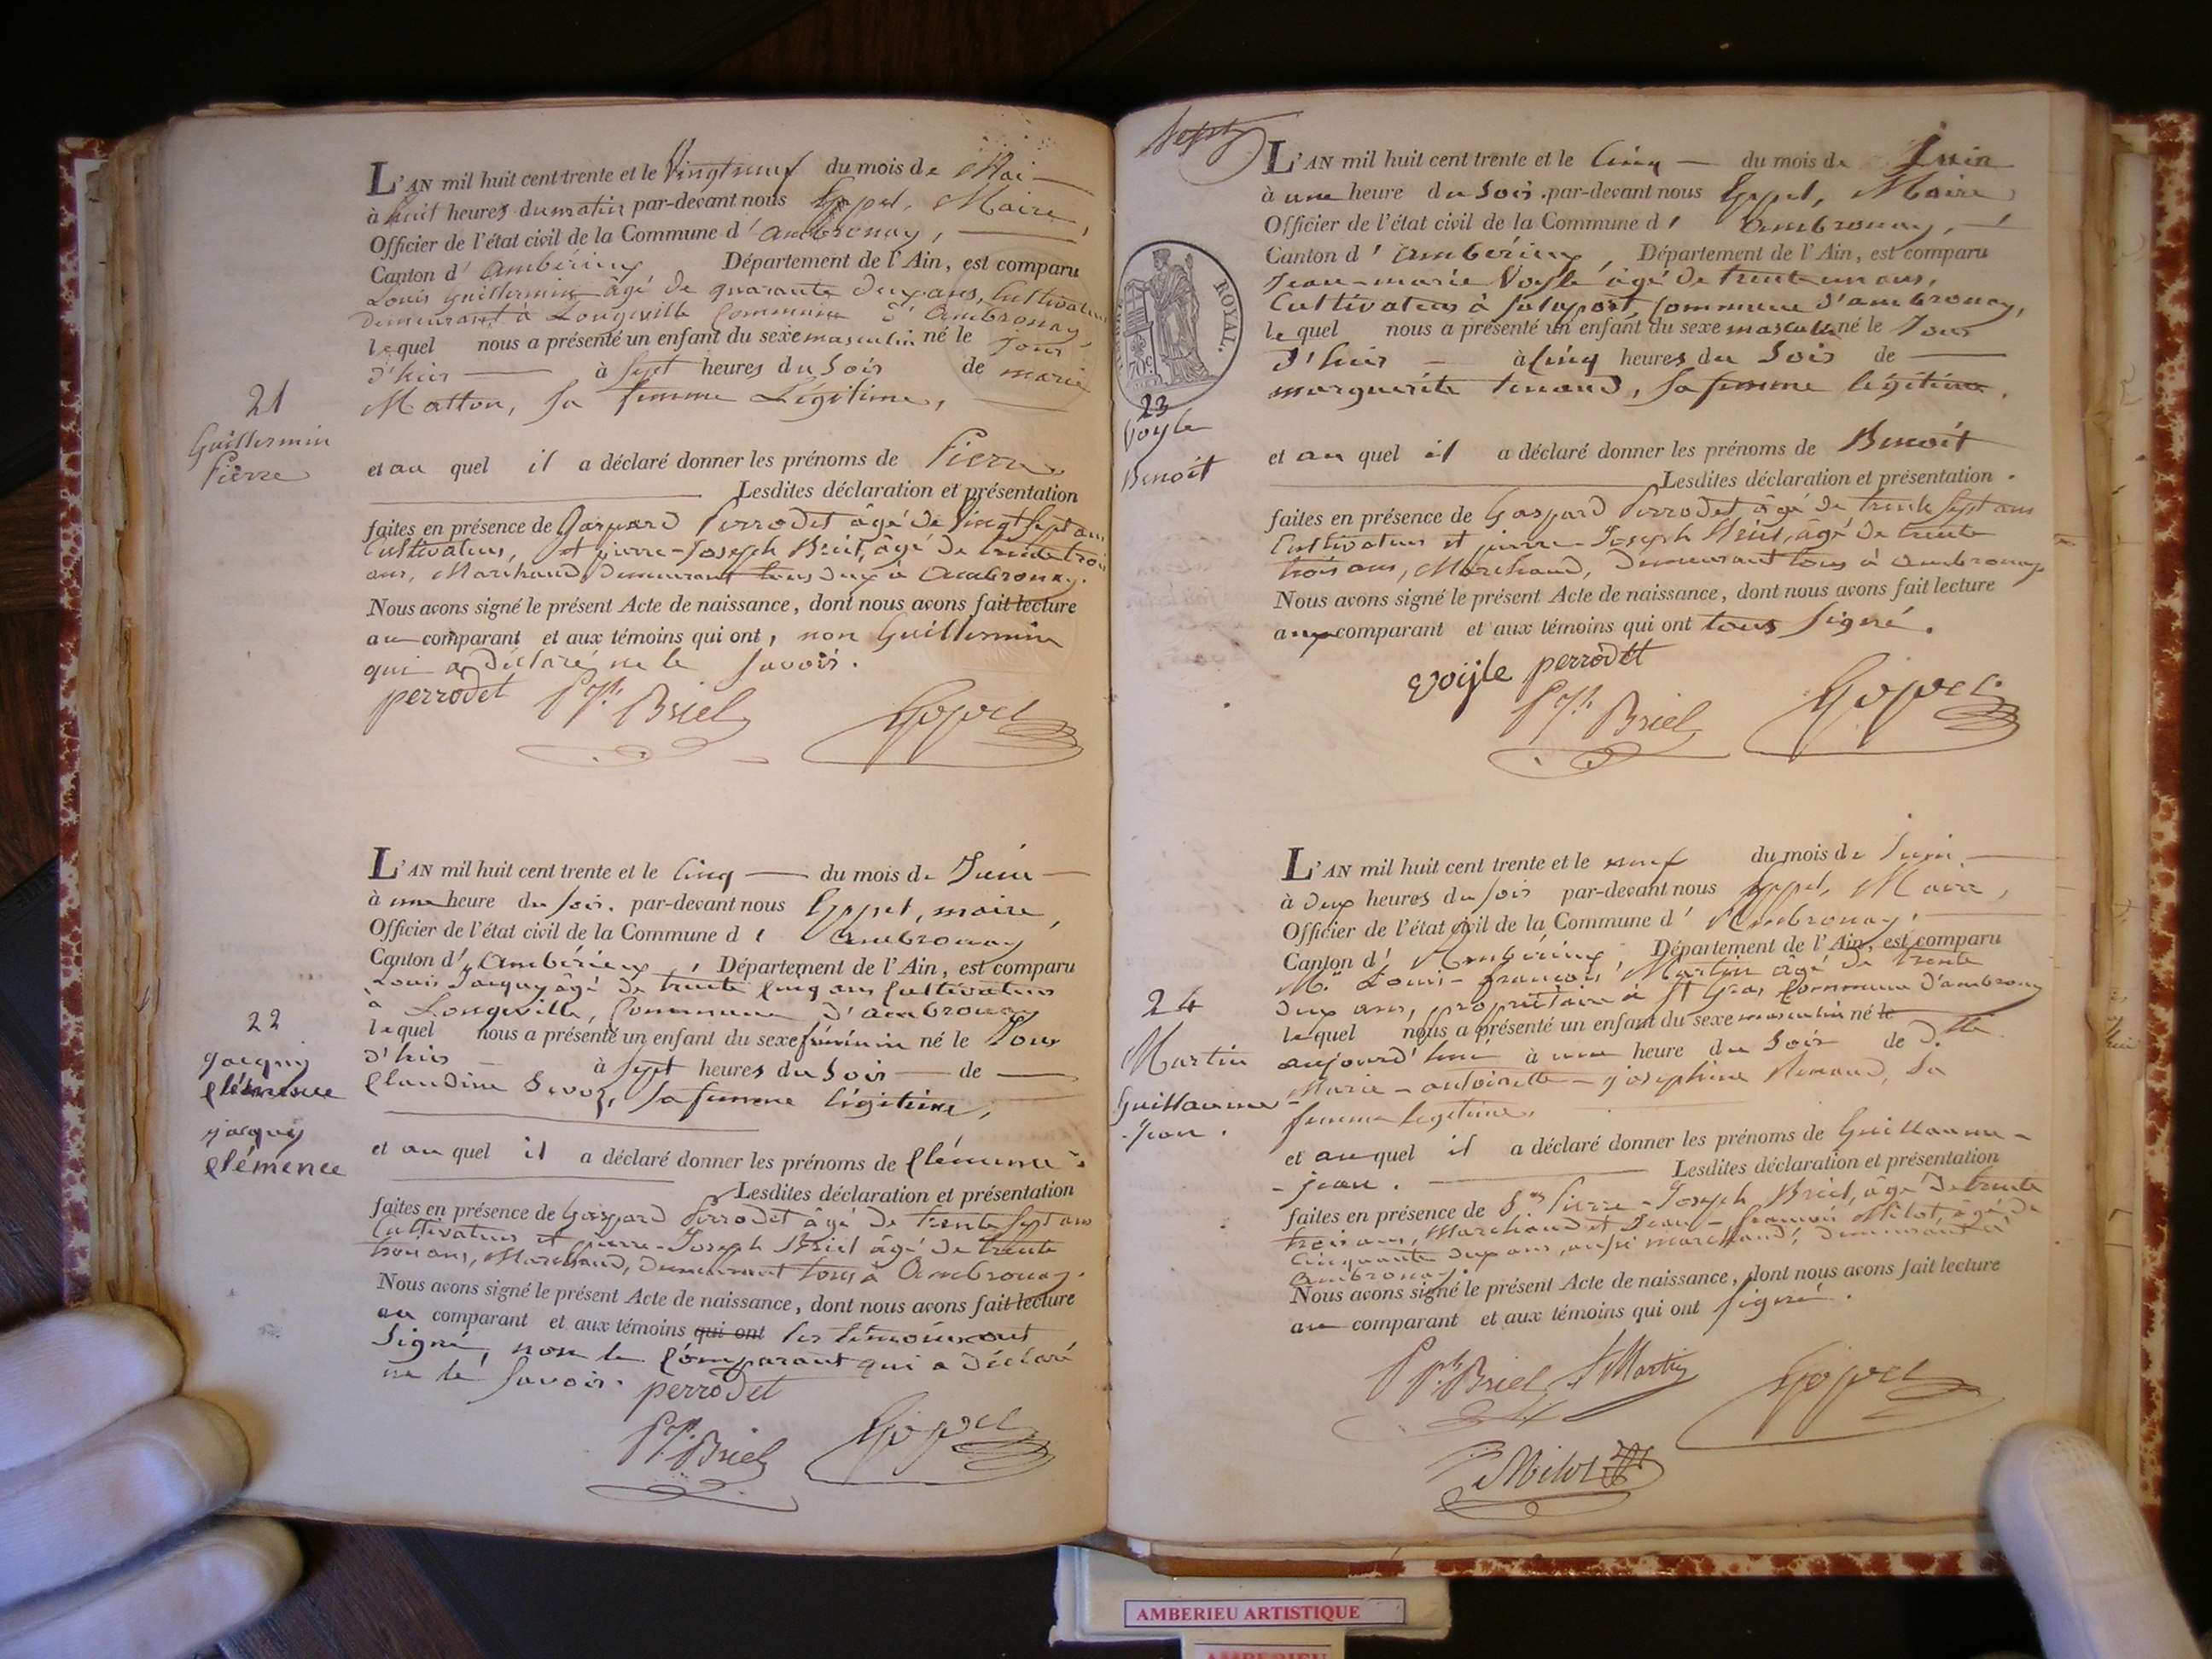 L'AN mil huit cent trente et le Vingt neuf du mois de Mai
à huit heures du matin par-devant nous Goppet, Maire,
Officier de l'état civil de la Commune d' ambronay,
Canton d' ambérieux Département de l'Ain, est comparu
Louis Guillermin âgé de quarante deux ans, Cultivateur
demeurant à Longeville Commune d'Ambronay
lequel nous a présenté un enfant du sexe masculin né le Jour
d'hier à Sept heures du Soir de marie
Matton, sa femme Légitime,
21
Guillermin
Pierre
et au quel il a déclaré donner les prénoms de Pierre
Lesdites déclaration et présentation
faites en présence de Gaspard Perrodet âgé de Vingt Sept ans
Cultivateur, et pierre-Joseph Briel, âgé de trente trois
ans, Marchand, demeurant tous deux à Ambronay.
Nous avons signé le présent Acte de naissance, dont nous avons fait lecture
au comparant et aux témoins qui ont, non Guillermin
qui a déclaré ne le savoir.
perrodet P. Jph Briel Goppet
L'AN mil huit cent trente et le Cinq du mois de Juin
à une heure du soir. par-devant nous Goppet, maire,
Officier de l'état civil de la Commune d' ambronay
Canton d' Ambérieux, Département de l'Ain, est comparu
Louis Jacquy âgé de trente cinq ans Cultivateur
à Longeville, Commune d'ambronay
lequel nous a présenté un enfant du sexe féminin né le Jour
d'hier à sept heures du Soir de
Claudine Sevoz, sa femme légitime,
22
Jacquy
Clémence
Jacquy
Clémence
et au quel il a déclaré donner les prénoms de Clémence
Lesdites déclaration et présentation
faites en présence de Gaspard Perrodet âgé de trente sept ans
Cultivateur et pierre-Joseph Briel âgé de trente
trois ans, Marchand, demeurant tous à Ambronay.
Nous avons signé le présent Acte de naissance, dont nous avons fait lecture
au comparant et aux témoins qui ont les témoins ont
signé, non le Comparant qui a déclaré
ne le savoir. perrodet
P. Jph Briel Goppet
L'AN mil huit cent trente et le Cinq du mois de Juin
à une heure du Soir. par-devant nous Goppet, Maire
Officier de l'état civil de la Commune d' Ambronay,
Canton d' Ambérieux, Département de l'Ain, est comparu
Jean-marie Voyle âgé de trente un ans,
Cultivateur à Salaport, Commune d'ambronay,
lequel nous a présenté un enfant du sexe masculin né le Jour
d'hier à Cinq heures du Soir de
marguerite tenand, sa femme légitime.
ROYAL.
70c.
23
Voyle
Benoit
et au quel il a déclaré donner les prénoms de Benoit
Lesdites déclaration et présentation
faites en présence de Gaspard Perrodet, âgé de trente sept ans
Cultivateur et pierre-Joseph Briel, âgé de trente
trois ans, Marchand, demeurant tous à Ambronay
Nous avons signé le présent Acte de naissance, dont nous avons fait lecture
aux comparant et aux témoins qui ont tous signé.
voyle perrodet
P. Jph Briel Goppet
L'AN mil huit cent trente et le neuf du mois de Juin
à deux heures du soir par-devant nous Goppet, Maire,
Officier de l'état civil de la Commune d' Ambronay,
Canton d' Ambérieux, Département de l'Ain, est comparu
Mr. Louis-françois Martin âgé de trente
deux ans, propriétaire à St Gras Commune d'ambronay
lequel nous a présenté un enfant du sexe masculin né le
aujourd'hui à une heure du Soir de
Marie-antoinette-josephine Renaud, sa
femme legitime.
24
Martin
Guillaume-
Jean.
et au quel il a déclaré donner les prénoms de Guillaume-
-jean.
Lesdites déclaration et présentation
faites en présence de Srs Pierre-Joseph Briel, âgé de trente
trois ans, Marchand et Jean-françois Milot, âgé de
cinquante deux ans, aussi marchand, demeurant à
Ambronay.
Nous avons signé le présent Acte de naissance, dont nous avons fait lecture
au comparant et aux témoins qui ont signé.
P Jph Briel Martin Goppet
Milot
AMBERIEU ARTISTIQUE
AMBERIEU